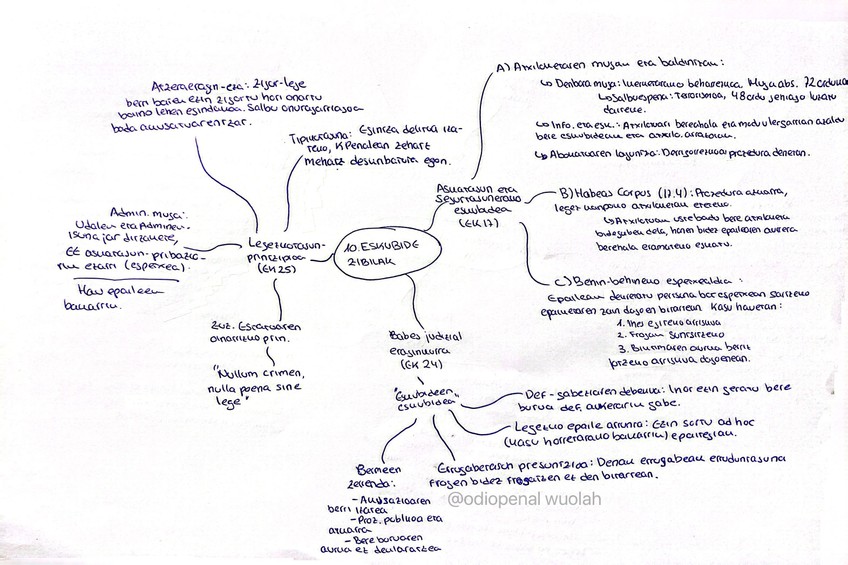 10. ESKUBIDE
ZIBILAK
Askatasun eta
Segurtasunerako
eskubidea
(EK 17)
A) Atxiloketaren mugak eta baldintzak:
Denbora muga: beharrezkoa. Muga abs. 72 ordu
Salbuespena: Terrorismoa, 48 ordu gehiago luzatu
daiteke.
Info. eta esk.: Atxilotuari berehala eta modu ulergarrian azaldu
bere eskubideak eta atxilo. arrazoiak.
Abokatuaren laguntza: Derrigorrezkoa prozedura denetan.
B) Habeas Corpus (17.4): Prozedura azkarra,
legez kanpoko atxiloketak eteteko.
Atxilotuak uste badu bere atxiloketa
bidegabea dela, honen bidez epailearen aurrera
berehala eramateko eskatu.
C) Behin-behineko espetxealdia:
Epaileak dekretatu pertsona bat espetxean sartzeko
epaiketaren zain dagoen bitartean. Kasu hauetan:
1. Ihes egiteko arriskua
2. Frogak suntsitzeko
3. Biktimaren aurka berriz
jotzeko arriskua dagoenean.
Legezkotasun-
printzipioa
(EK 25)
Atzeraeragin-eza: Zigor-lege
berri batek ezin zigortu hori onartu
baino lehen egindakoa. Salbu onuragarriagoa
bada akusatuarentzat.
Tipikotasuna: Eginiko delitua
K.Penalean zehatz
mehatz deskribatuta egon.
Admin. muga:
Udalek eta Adminek
isunak jar ditzakete,
EZ askatasun-pribazio-
rik ezarri (espetxea).
Hau epaileek
bakarrik.
Zuz. Estatuaren
oinarrizko prin.
"Nullum crimen,
nulla poena sine
lege"
Babes judizial
eraginkorra
(EK 24)
"Eskubideen
eskubidea"
Def-gabeziaren debekua: Inor ezin geratu bere
burua def. aukerarik gabe.
Legezko epaile arrunta: Ezin sortu ad hoc
(kasu horretarako bakarrik) epaitegiak.
Errugabetasun presuntzioa: Denak errugabeak erruduntasuna
frogen bidez frogatzen ez den bitartean.
Bermeen
zerrenda:
- Akusazioaren
berri izatea
- Proz. publikoa eta
azkarra
- Bere buruaren
aurka ez deklaratzea
@odiopenal wuolah